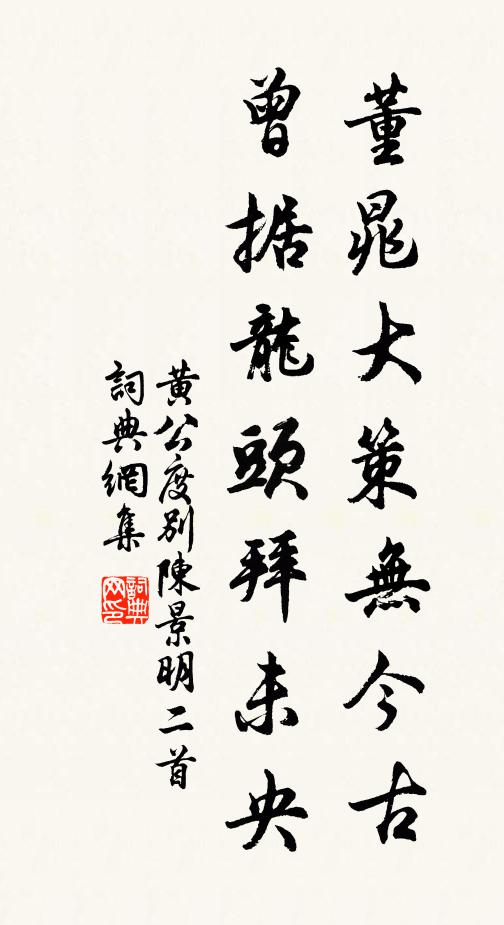 董晁大策無今古
曾据龍頭拜未央
黃公度別陳景明二首
詞典網集
詞典網印